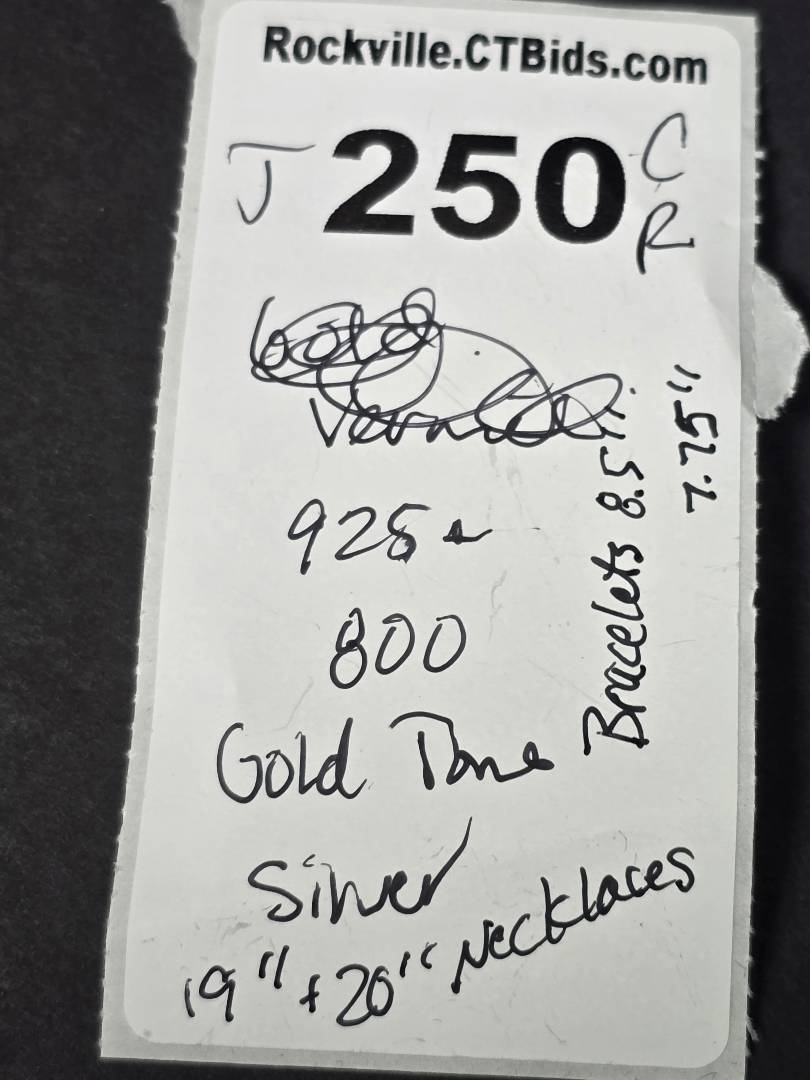 Rockville.CTBids.com
J 250 C R
Gold
Vermeil
925 +
800
Gold Tone
Silver
19" + 20" Necklaces
Bracelets 8.5"
7.75"